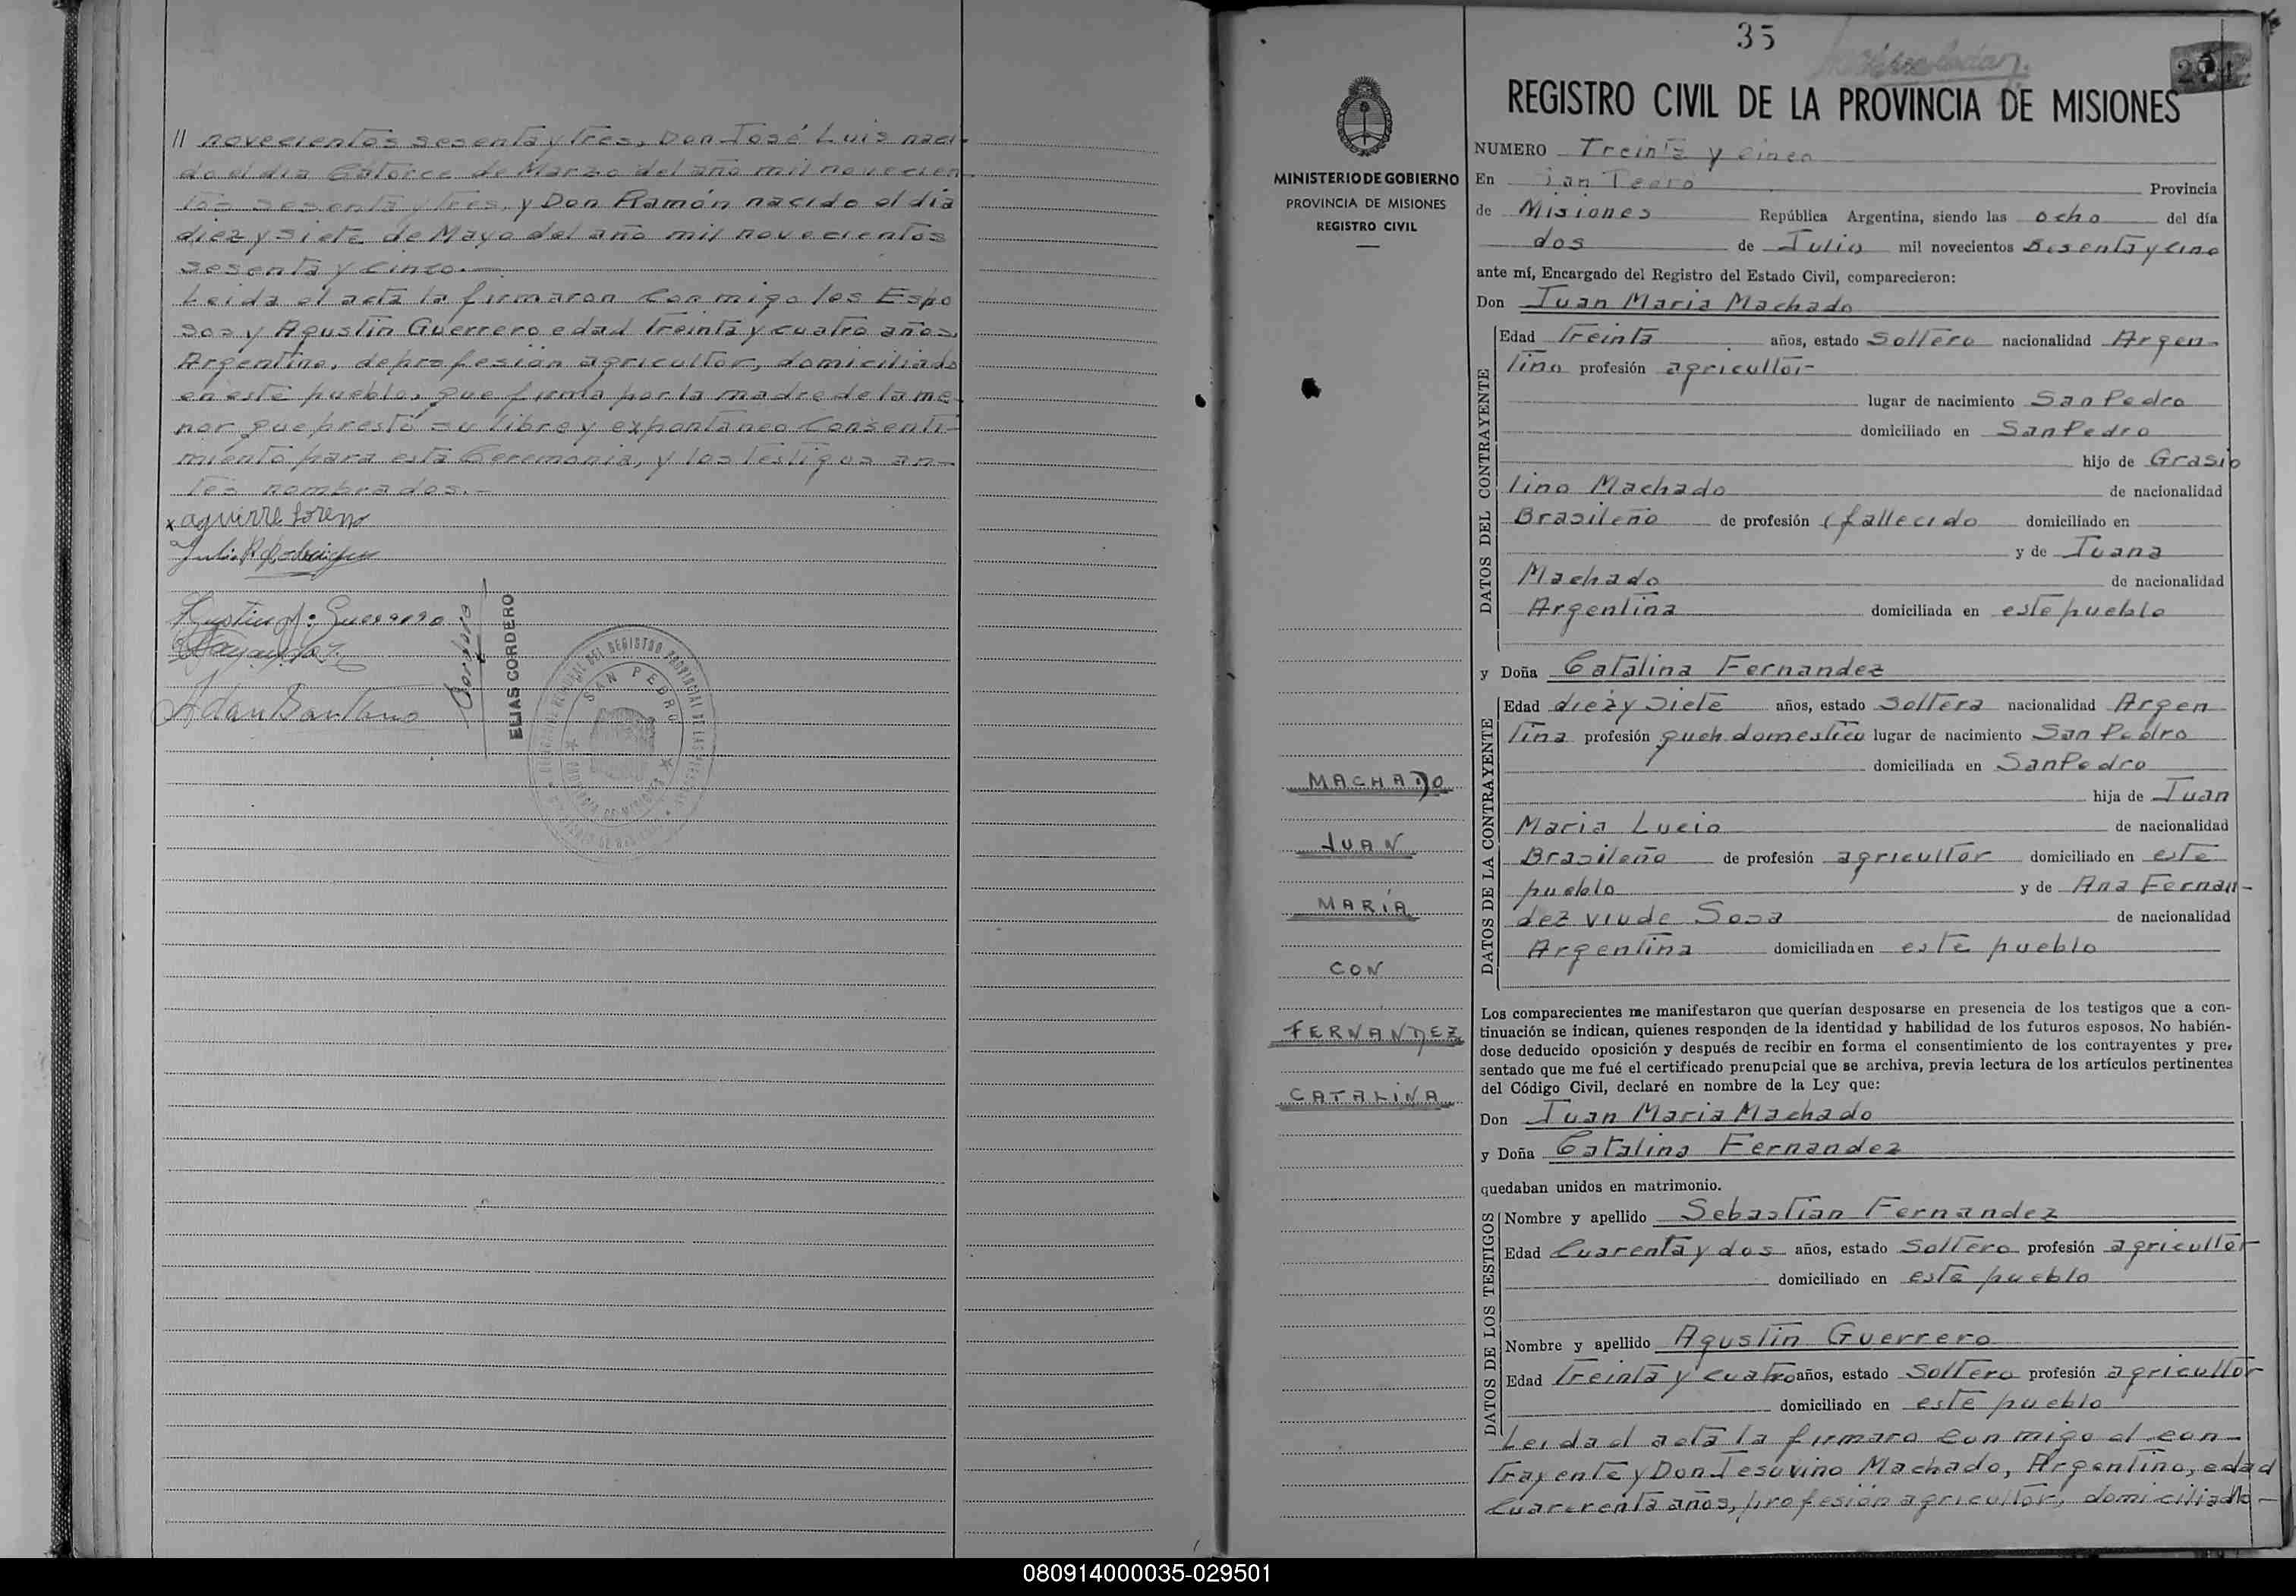 // novecientos sesenta y tres, Don José Luis naci-
do el dia Catorce de Marzo del año mil novecien
tos sesenta y tres, y Don Ramón nacido el dia
diez y siete de Mayo del año mil novecientos
sesenta y cinco.-
Leida el acta la firmaron con migo los Espo
sos y Agustin Guerrero edad treinta y cuatro años,
Argentino, de profesión agricultor, domiciliado
en este pueblo, que firma por la madre de la me-
nor que prestó su libre y expontáneo Consenti-
miento para esta Ceremonia, y los testigos an-
tes nombrados.-
x aguirre Loreno
Julia Rodriguez
Agustin Guerrero
Adan Santano
Cordero
ELIAS CORDERO
SAN PEDRO
35
REGISTRO CIVIL DE LA PROVINCIA DE MISIONES
MINISTERIO DE GOBIERNO
PROVINCIA DE MISIONES
REGISTRO CIVIL
NUMERO Treinta y cinco
En San Pedro Provincia
de Misiones República Argentina, siendo las ocho del día
dos de Julio mil novecientos Sesenta y cinc
ante mí, Encargado del Registro del Estado Civil, comparecieron:
Don Juan Maria Machado
DATOS DEL CONTRAYENTE
Edad treinta años, estado Soltero nacionalidad Argen-
tino profesión agricultor
lugar de nacimiento San Pedro
domiciliado en San Pedro
hijo de Grasio
lino Machado de nacionalidad
Brasileño de profesión (fallecido domiciliado en
y de Juana
Machado de nacionalidad
Argentina domiciliada en este pueblo
y Doña Catalina Fernandez
DATOS DE LA CONTRAYENTE
Edad diez y siete años, estado Soltera nacionalidad Argen
tina profesión queh. domestico lugar de nacimiento San Pedro
domiciliada en San Pedro
hija de Juan
Maria Lucio de nacionalidad
Brasileño de profesión agricultor domiciliado en este
pueblo y de Ana Fernan-
dez viu de Sosa de nacionalidad
Argentina domiciliada en este pueblo
MACHADO
JUAN
MARÍA
CON
FERNANDEZ
CATALINA
Los comparecientes me manifestaron que querían desposarse en presencia de los testigos que a con-
tinuación se indican, quienes responden de la identidad y habilidad de los futuros esposos. No habién-
dose deducido oposición y después de recibir en forma el consentimiento de los contrayentes y pre-
sentado que me fué el certificado prenupcial que se archiva, previa lectura de los artículos pertinentes
del Código Civil, declaré en nombre de la Ley que:
Don Juan Maria Machado
y Doña Catalina Fernandez
quedaban unidos en matrimonio.
DATOS DE LOS TESTIGOS
Nombre y apellido Sebastian Fernandez
Edad Cuarenta y dos años, estado Soltero profesión agricultor
domiciliado en este pueblo
Nombre y apellido Agustin Guerrero
Edad treinta y cuatro años, estado Soltero profesión agricultor
domiciliado en este pueblo
Leida el acta la firmaro con migo el con-
trayente y Don Jesuvino Machado, Argentino, edad
Cuarerenta años, profesión agricultor, domiciliado-
080914000035-029501